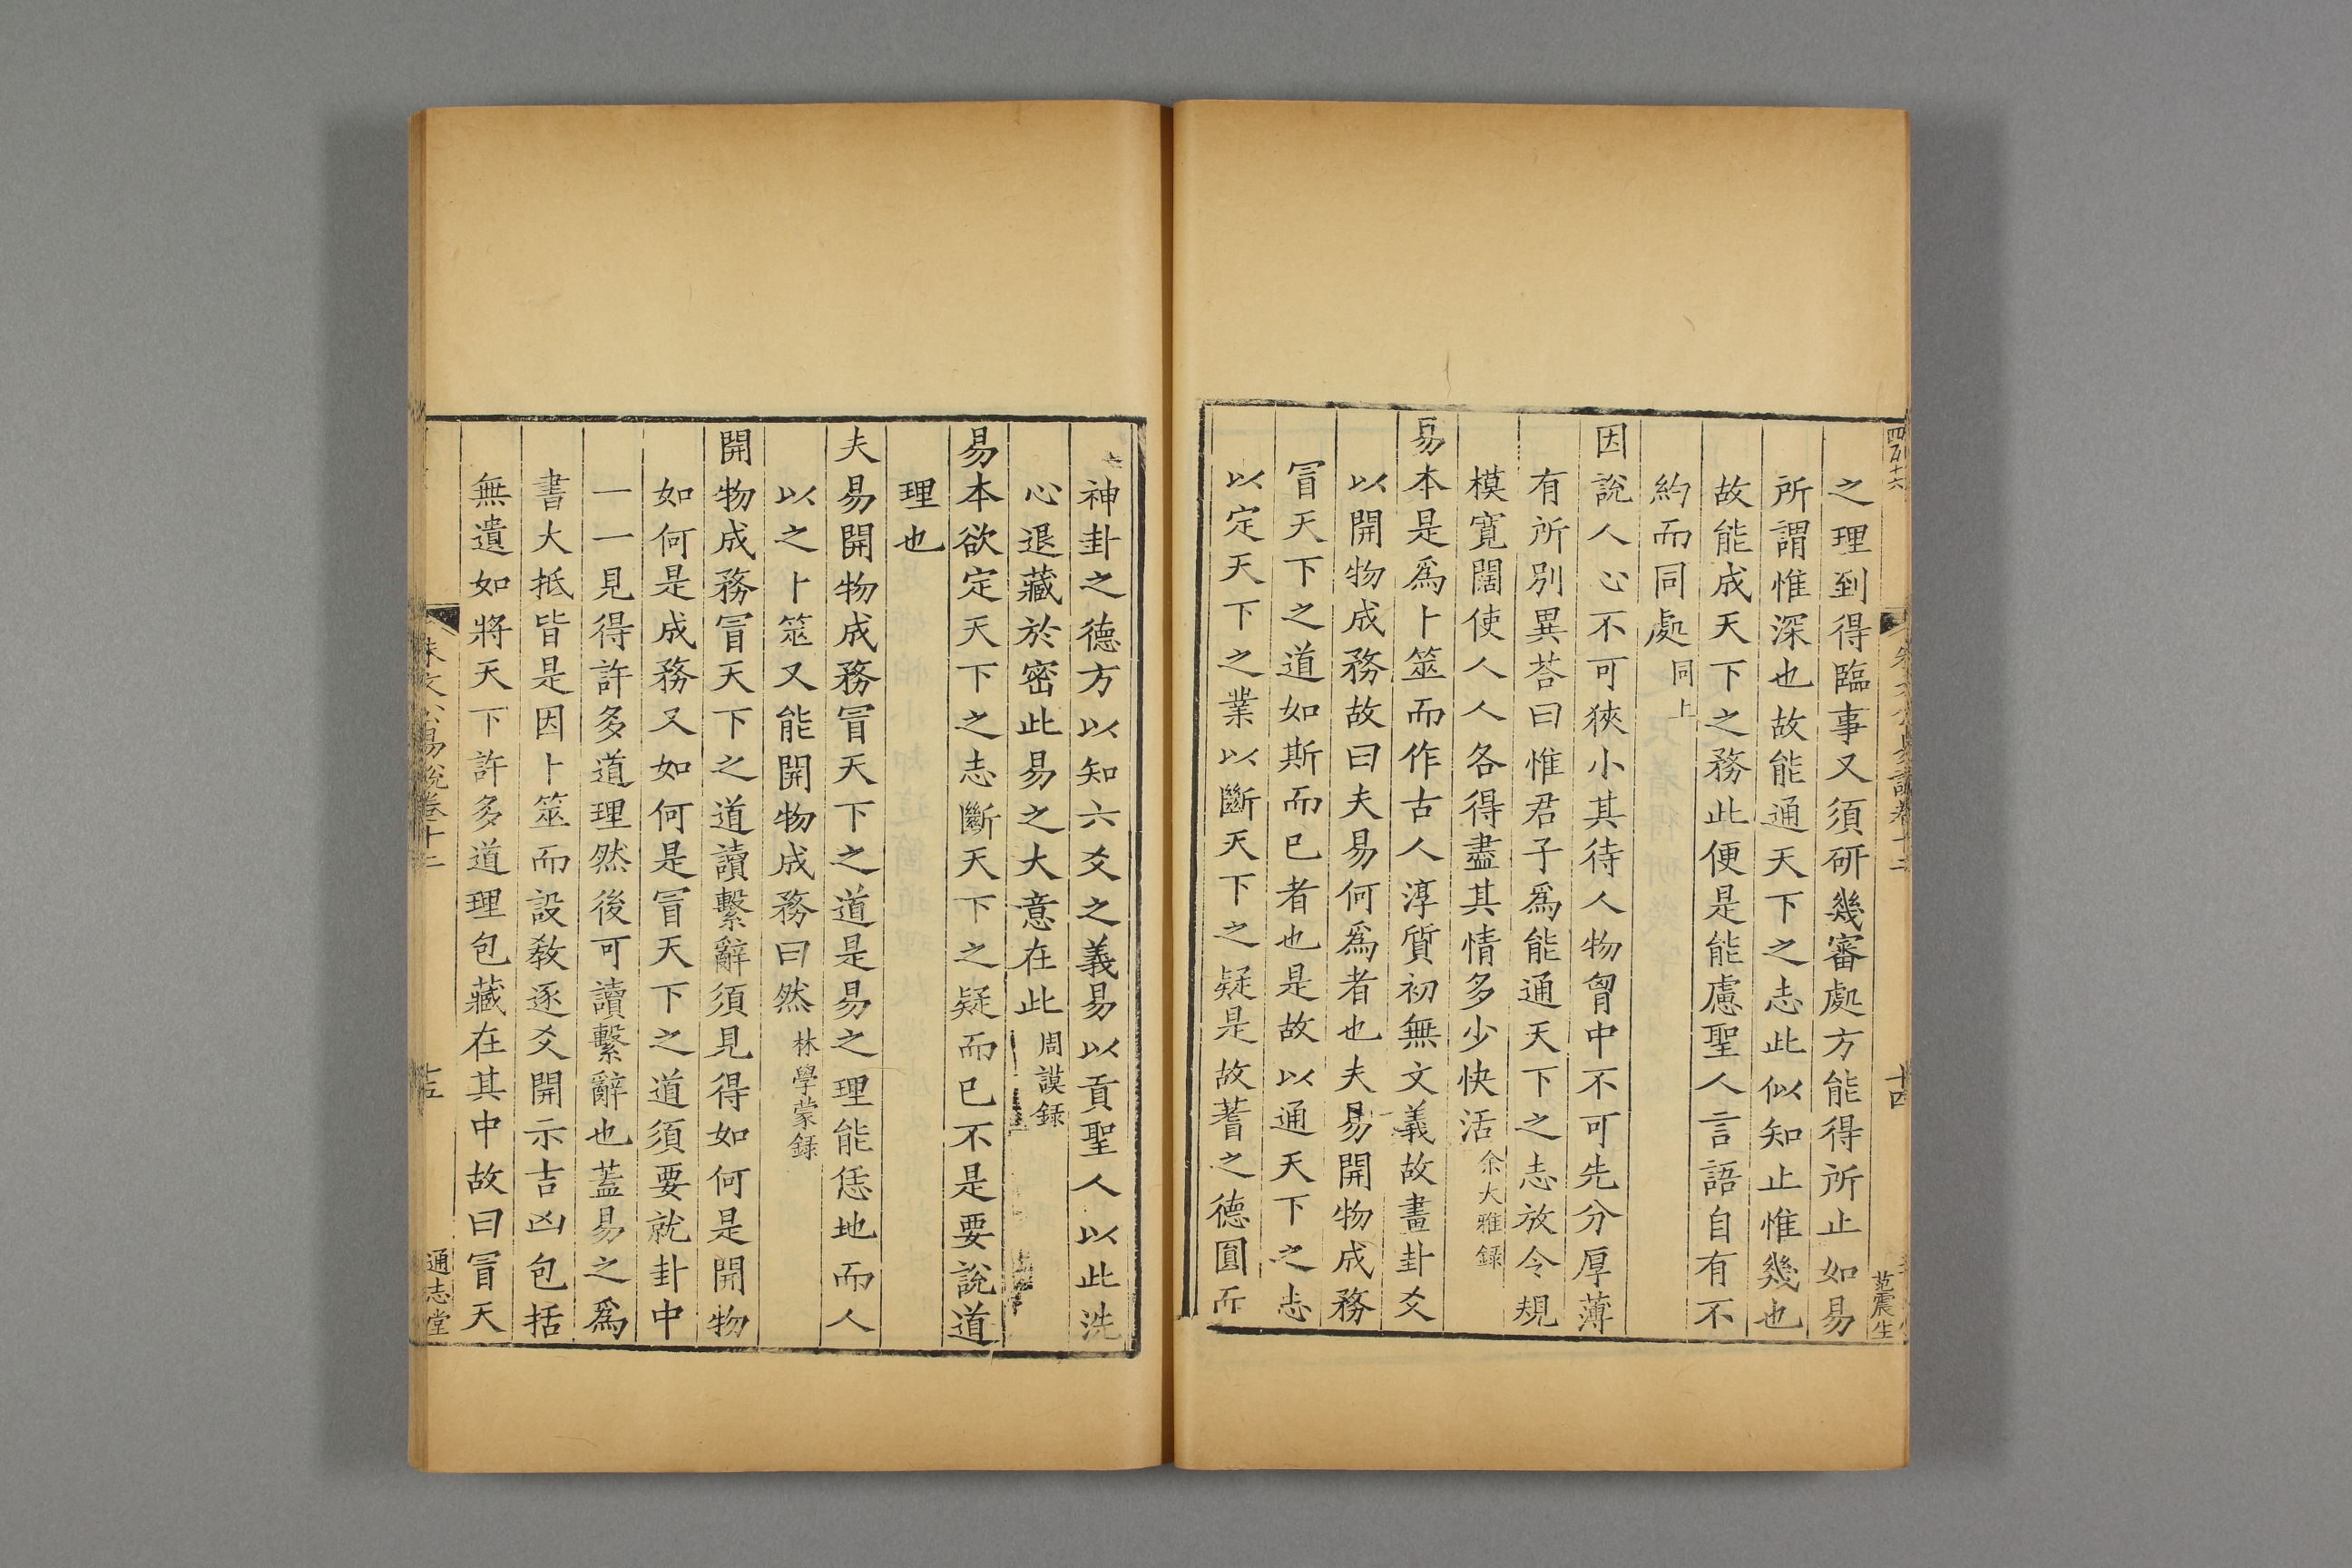 之理到得臨事又須研幾審處方能得所止如易
所謂惟深也故能通天下之志此似知止惟幾也
故能成天下之務此便是能慮聖人言語自有不
約而同處同上
因說人心不可狹小其待人物胷中不可先分厚薄
有所別異荅曰惟君子爲能通天下之志放令規
模寬闊使人人各得盡其情多少快活余大雅録
易本是爲卜筮而作古人淳質初無文義故畫卦爻
以開物成務故曰夫易何爲者也夫易開物成務
冒天下之道如斯而已者也是故以通天下之志
以定天下之業以斷天下之疑是故蓍之德圓而
神卦之德方以知六爻之義易以貢聖人以此洗
心退藏於密此易之大意在此周謨録
易本欲定天下之志斷天下之疑而已不是要說道
理也
夫易開物成務冒天下之道是易之理能恁地而人
以之卜筮又能開物成務曰然林學蒙録
開物成務冒天下之道讀繫辭須見得如何是開物
如何是成務又如何是冒天下之道須要就卦中
一一見得許多道理然後可讀繫辭也蓋易之爲
書大抵皆是因卜筮而設教逐爻開示吉凶包括
無遺如將天下許多道理包藏在其中故曰冒天
朱文公易說卷十二
十五
通志堂
四百十六
朱文公易說卷十二
十四
范震生